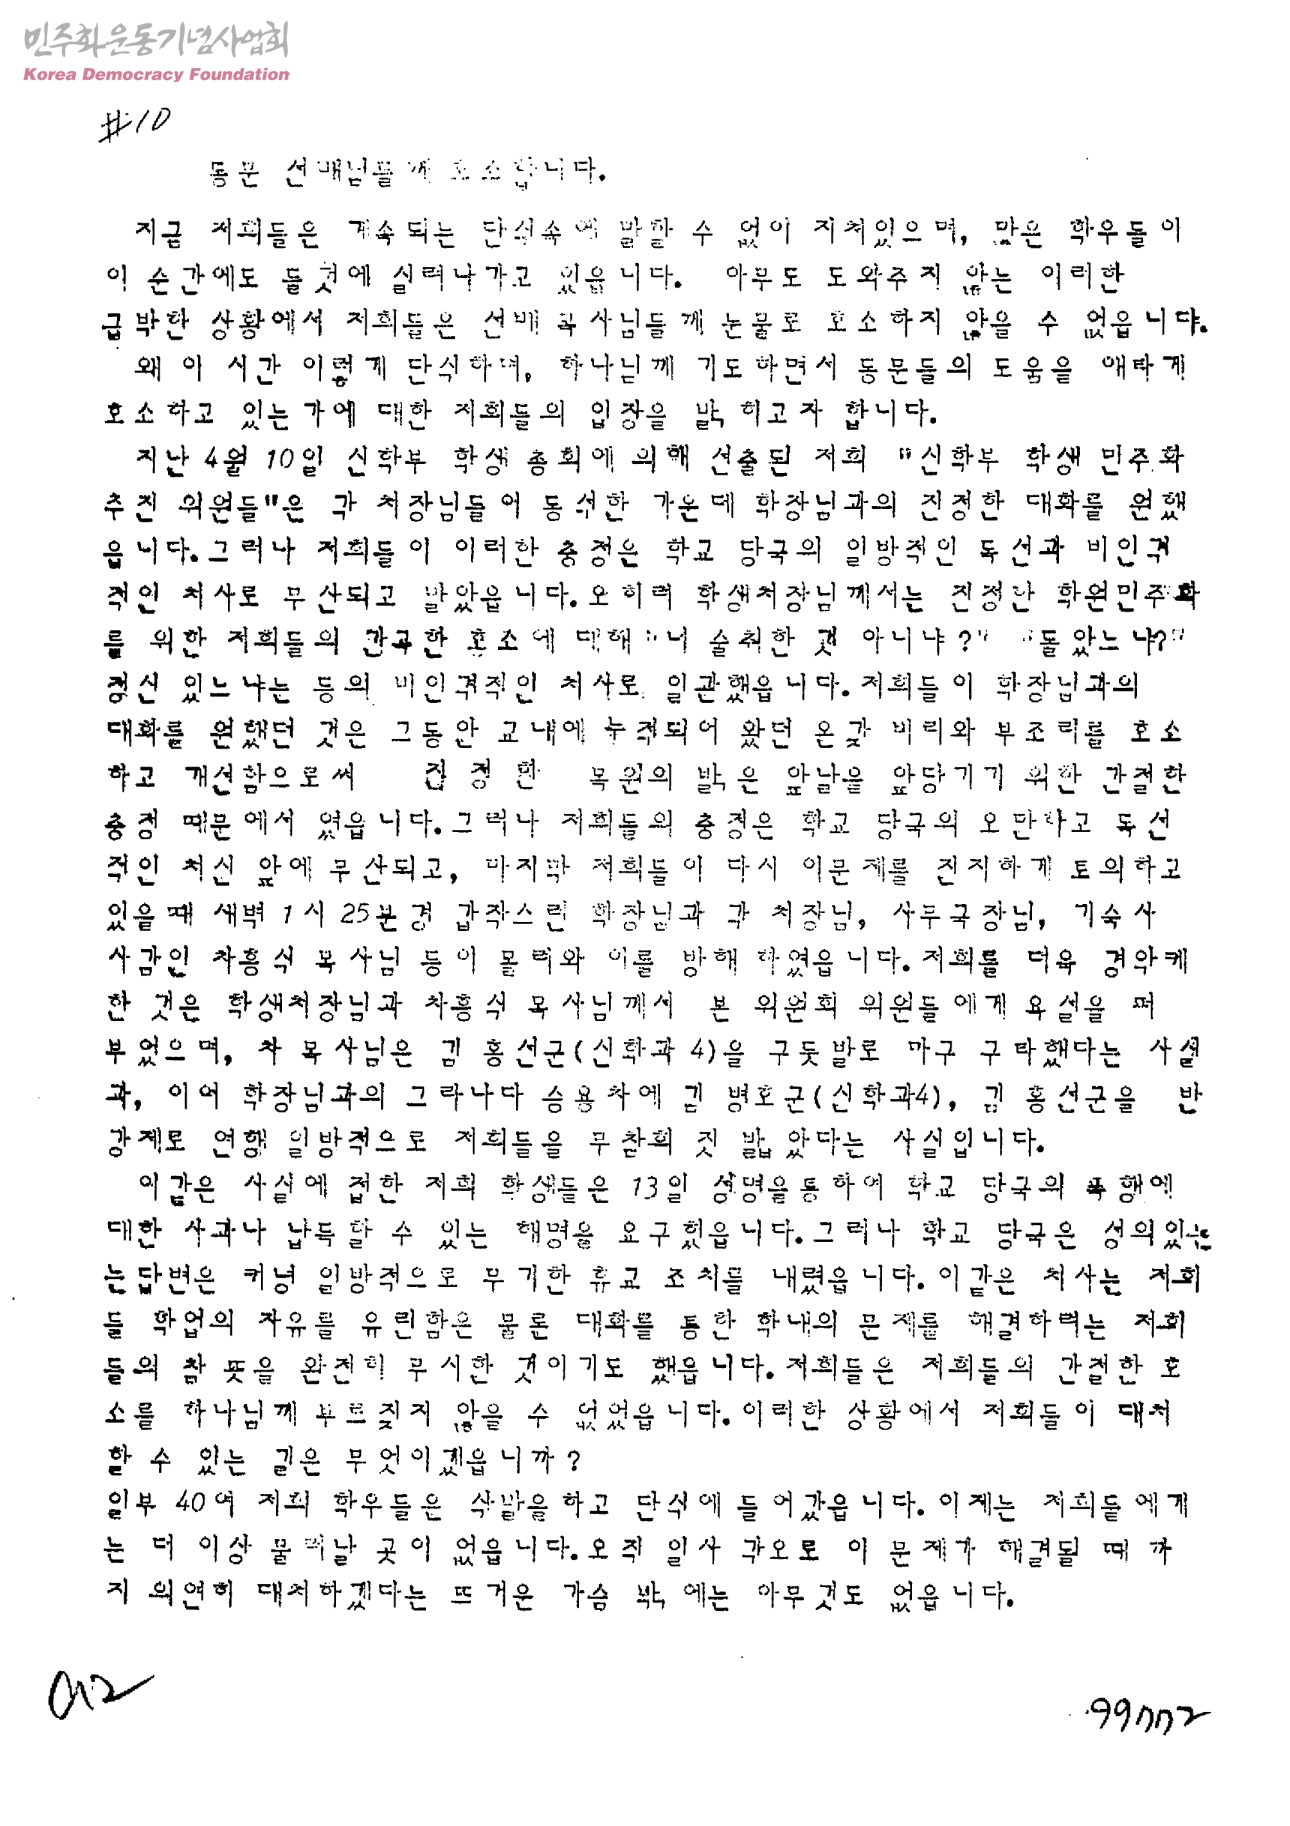 민주화운동기념사업회
Korea Democracy Foundation
#10
동문 선배님들께 호소합니다.
지금 저희들은 계속되는 단식속에 말할 수 없이 지쳐있으며, 많은 학우들이
이 순간에도 들것에 실려나가고 있읍니다. 아무도 도와주지 않는 이러한
급박한 상황에서 저희들은 선배 목사님들께 눈물로 호소하지 않을 수 없읍니다.
왜 이 시간 이렇게 단식하며, 하나님께 기도하면서 동문들의 도움을 애타게
호소하고 있는가에 대한 저희들의 입장을 밝히고자 합니다.
지난 4월 10일 신학부 학생 총회에 의해 선출된 저희 "신학부 학생 민주화
추진 위원들"은 각 처장님들이 동석한 가운데 학장님과의 진정한 대화를 원했
읍니다.그러나 저희들이 이러한 충정은 학교 당국의 일방적인 독선과 비인격
적인 처사로 무산되고 말았읍니다.오히려 학생처장님께서는 진정한 학원민주화
를 위한 저희들의 간곡한 호소에 대해 "너 술취한 것 아니냐?" "돌았느냐?"
정신 있느냐는 등의 비인격적인 처사로 일관했읍니다.저희들이 학장님과의
대화를 원했던 것은 그동안 교내에 누적되어 왔던 온갖 비리와 부조리를 호소
하고 개선함으로써 진정한 목원의 밝은 앞날을 앞당기기 위한 간절한
충정 때문에서 였읍니다.그러나 저희들의 충정은 학교 당국의 오만하고 독선
적인 처신 앞에 무산되고, 마지막 저희들이 다시 이문제를 진지하게 토의하고
있을때 새벽 1시 25분경 갑작스런 학장님과 각 처장님, 사무국장님, 기숙사
사감인 차흥식 목사님 등이 몰려와 이를 방해 하였읍니다.저희를 더욱 경악케
한 것은 학생처장님과 차흥식 목사님께서 본 위원회 위원들에게 욕설을 퍼
부었으며, 차 목사님은 김 홍선군(신학과 4)을 구둣발로 마구 구타했다는 사실
과, 이어 학장님과의 그라나다 승용차에 김 병호군(신학과4), 김 홍선군을 반
강제로 연행 일방적으로 저희들을 무참희 짓 밟았다는 사실입니다.
이같은 사실에 접한 저희 학생들은 13일 성명을통하여 학교 당국의 폭행에
대한 사과나 납득할 수 있는 해명을 요구했읍니다.그러나 학교 당국은 성의있는
는답변은 커녕 일방적으로 무기한 휴교 조치를 내렸읍니다.이같은 처사는 저희
들 학업의 자유를 유린함은 물론 대화를 통한 학내의 문제를 해결하려는 저희
들의 참 뜻을 완전히 무시한 것이기도 했읍니다.저희들은 저희들의 간절한 호
소를 하나님께 부르짖지 않을 수 없었읍니다.이러한 상황에서 저희들이 대처
할 수 있는 길은 무엇이겠읍니까?
일부 40여 저희 학우들은 삭발을하고 단식에 들어갔읍니다.이제는 저희들에게
는 더 이상 물러날 곳이 없읍니다.오직 일사 각오로 이 문제가 해결될 때 까
지 의연히 대처하겠다는 뜨거운 가슴 밖에는 아무것도 없읍니다.